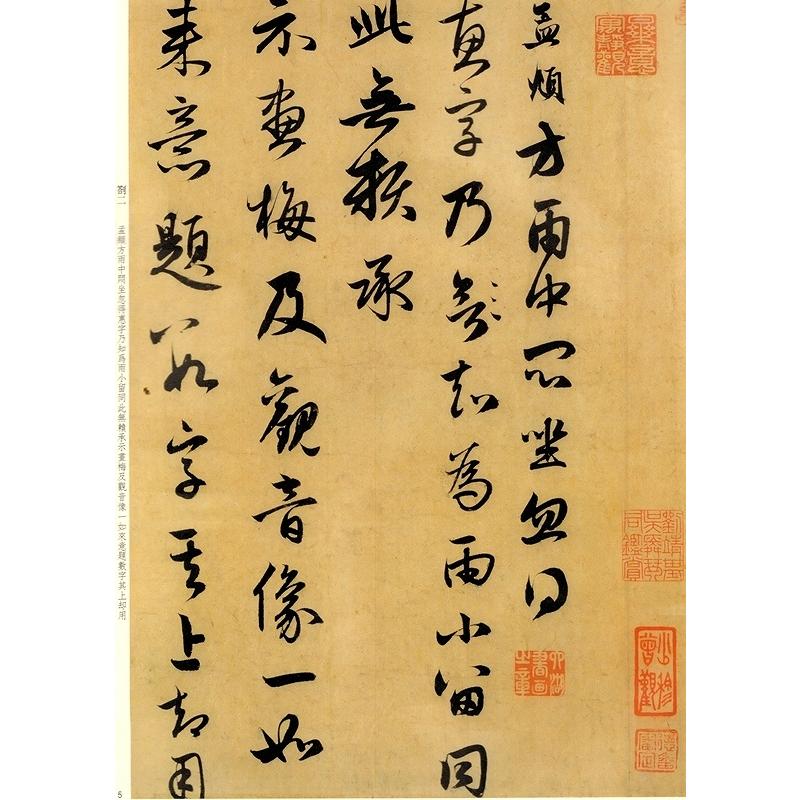 孟頫方雨中悶坐忽得
惠字乃知為雨小留同
此無賴承
示畫梅及觀音像一如
來意題數字其上却用
劉靖基
吳舜英
同鑑賞
少穆
曾觀
劄二 孟頫方雨中悶坐忽得惠字乃知爲雨小留同此無賴承示畫梅及觀音像一如來意題數字其上却用
5